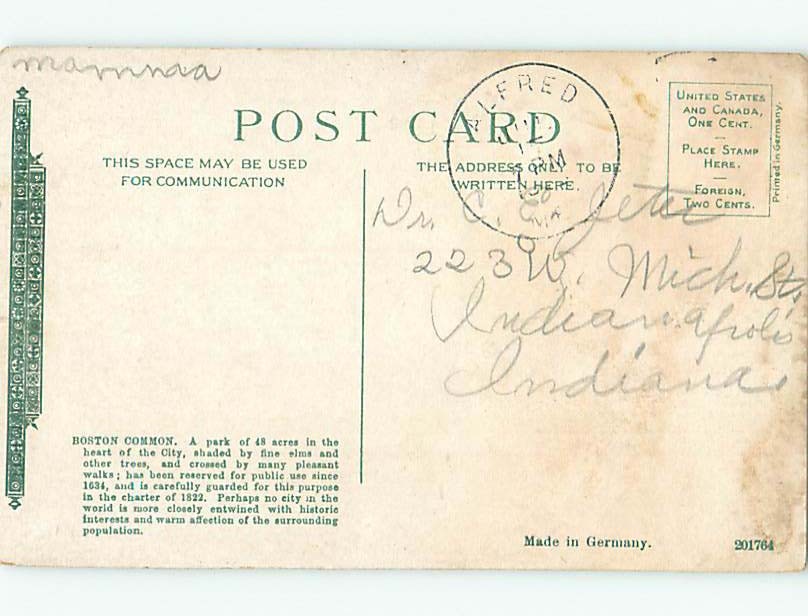 mamma
POST CARD
THIS SPACE MAY BE USED
FOR COMMUNICATION
THE ADDRESS ONLY TO BE
WRITTEN HERE.
ALFRED
7 PM
UNITED STATES
AND CANADA,
ONE CENT.
PLACE STAMP
HERE.
FOREIGN,
TWO CENTS.
Printed in Germany.
Dr. C. E. Jeter
223 W. Mich. St.
Indianapolis
Indiana
BOSTON COMMON. A park of 48 acres in the
heart of the City, shaded by fine elms and
other trees, and crossed by many pleasant
walks; has been reserved for public use since
1634, and is carefully guarded for this purpose
in the charter of 1822. Perhaps no city in the
world is more closely entwined with historic
interests and warm affection of the surrounding
population.
Made in Germany.
201764